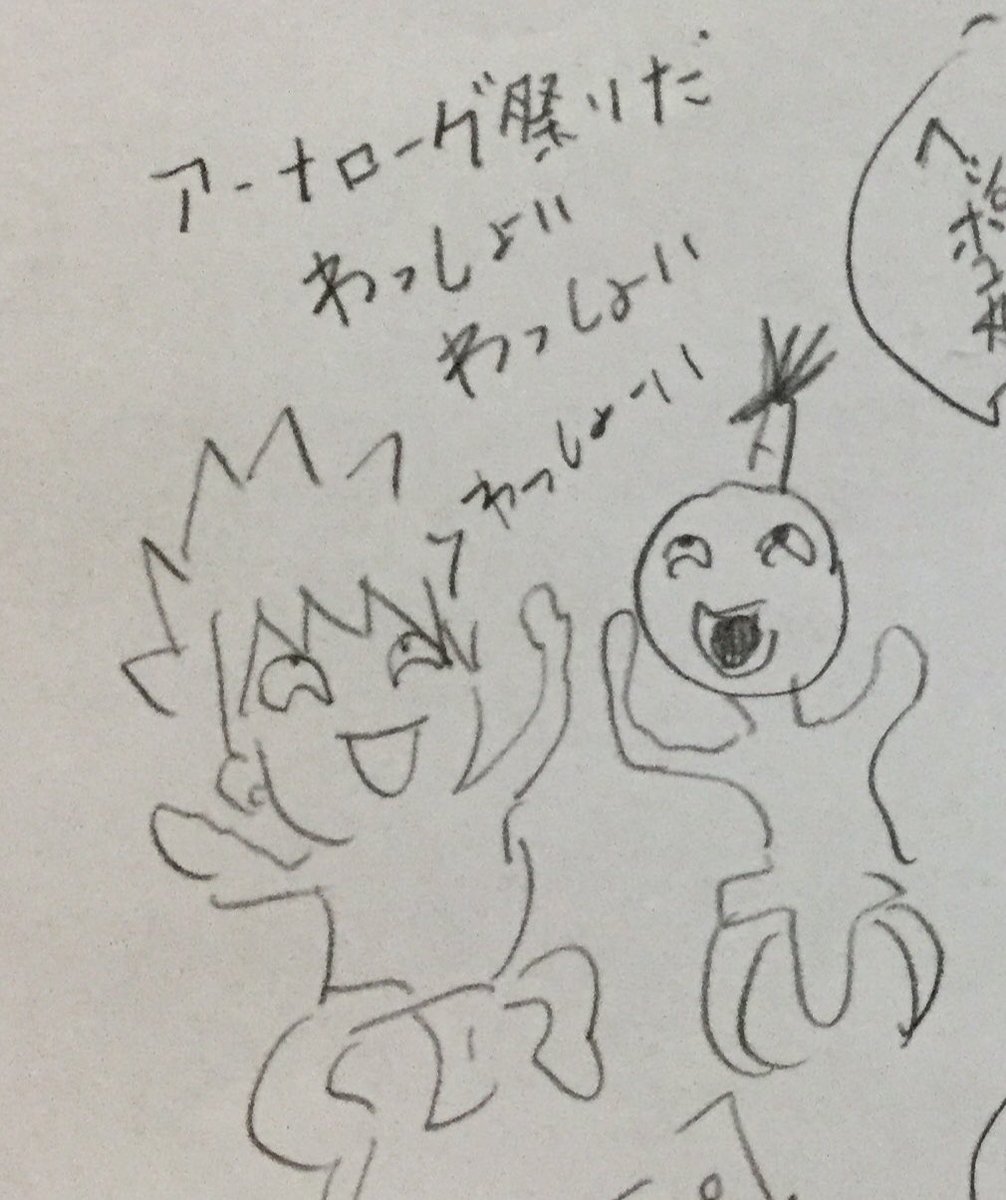 アーナローグ祭りだ
わっしょい
わっしょい
わっしょーい